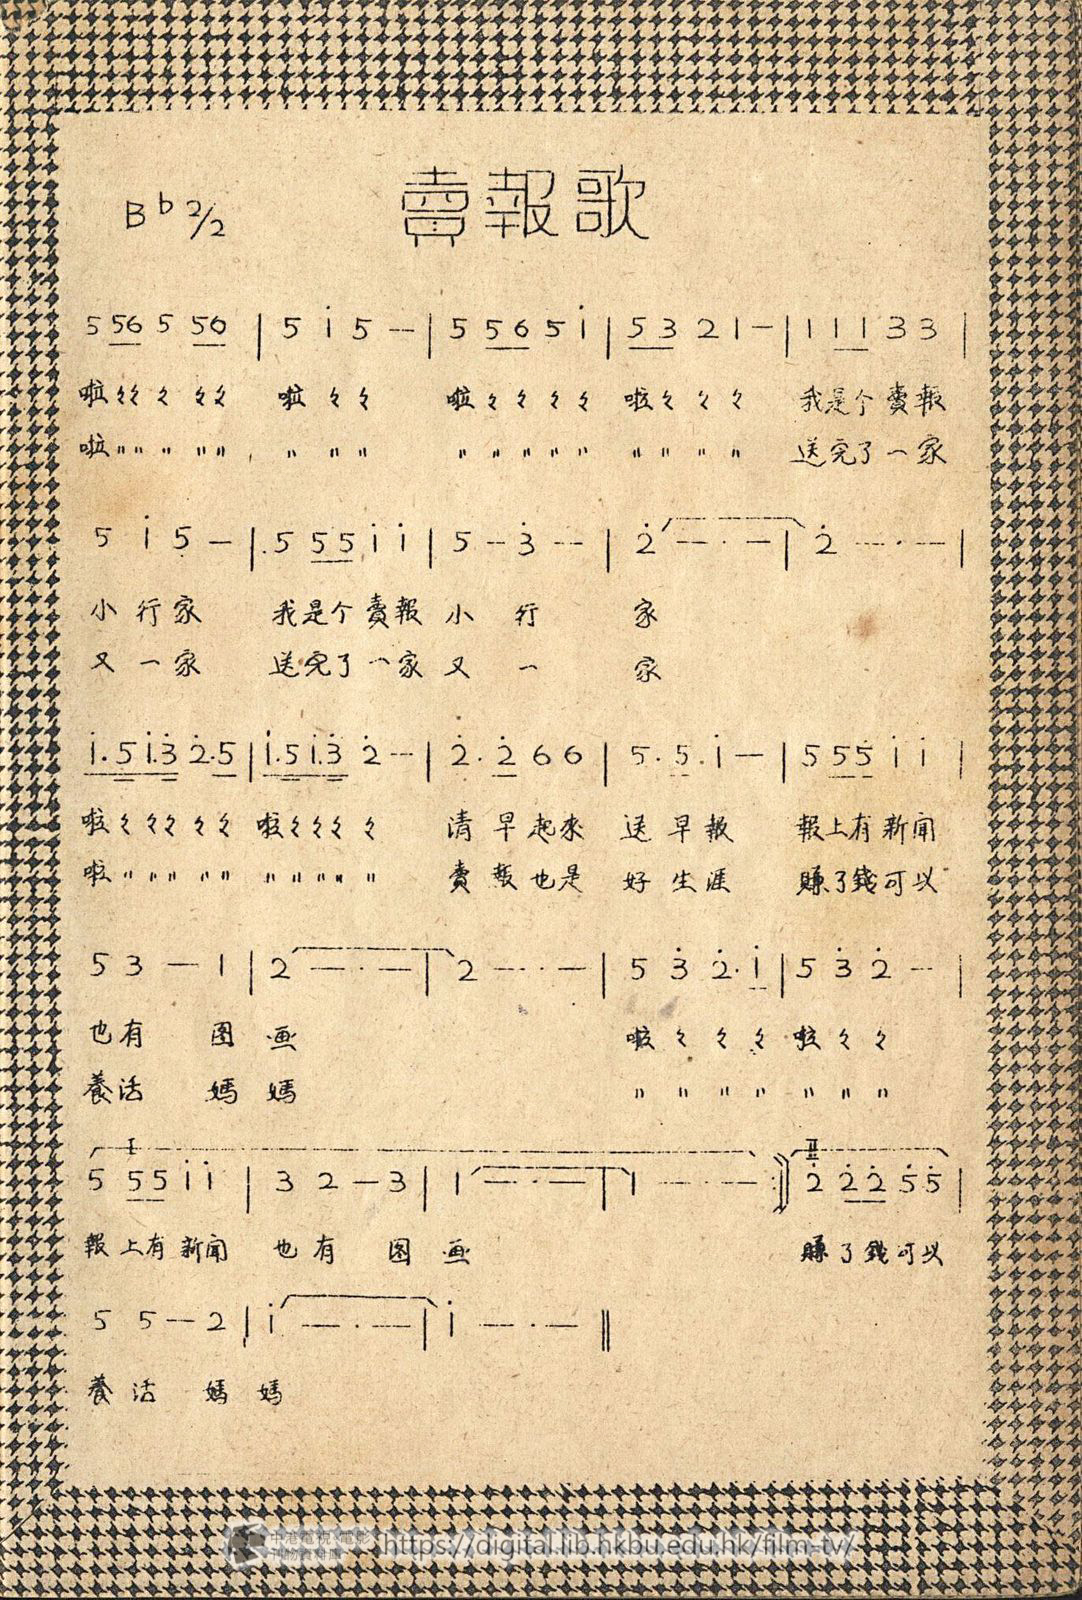 賣報歌
B b 2/2
5 56 5 56 | 5 i 5 — | 5 5 6 5 i | 5 3 2 1 — | 1 1 1 3 3 |
啦〻〻 〻 〻〻 啦 〻 〻 啦 〻 〻 〻 〻 啦〻 〻 〻 我是个 賣報
啦〃〃 〃 〃〃 〃 〃 〃 〃 〃 〃 〃 〃 〃 〃 〃 〃 送完了 一 家
5 i 5 — | 5 5 5 i i | 5 — 3̇ — | 2̇ — · — | 2̇ — · — |
小 行 家 我是个 賣報 小 行 家
又 一 家 送完了 一家 又 一 家
i. 5 i. 3̇ 2̇. 5 | i. 5 i. 3̇ 2̇ — | 2̇. 2̇ 6 6 | 5. 5. i — | 5 5 5 i i |
啦〻 〻〻 〻 〻 啦〻〻〻 〻 清 早 起來 送 早 報 報上有 新聞
啦〃 〃〃 〃〃 〃 〃〃〃 〃 賣 報 也是 好 生 涯 賺了錢可以
5 3 — 1 | 2 — · — | 2 — · — | 5 3̇ 2̇. i | 5 3̇ 2̇ — |
也有 图 画 啦 〻 〻 〻 啦 〻 〻
養活 媽 媽 〃 〃 〃 〃 〃 〃 〃
I II
5 5 5 i i | 3 2 — 3 | 1 — · — | 1 — · — :|| 2̇ 2̇ 2̇ 5̇ 5̇ |
報 上有 新聞 也 有 图 画 賺 了 錢可以
5 5 — 2 | i — · — | i — · — ||
養 活 媽 媽
中港電視·電影
刊物資料庫
https://digital.lib.hkbu.edu.hk/film-tv/